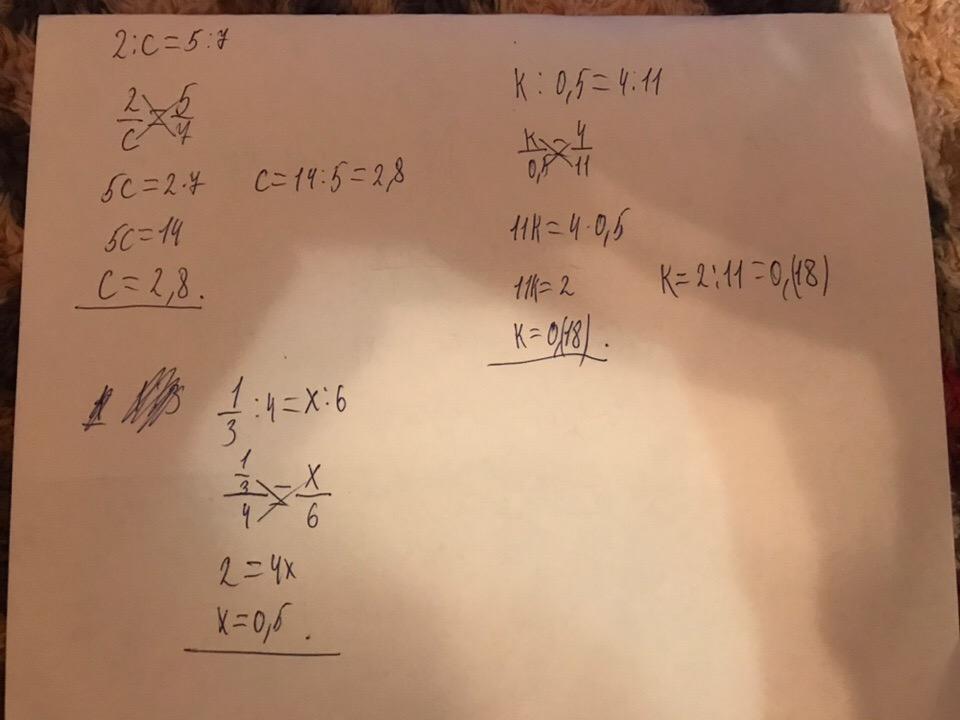 2:c=5:7
2/c = 5/7
5c=2·7 c=14:5=2,8
5c=14
c=2,8.
к : 0,5=4:11
к/0,5 = 4/11
11к=4·0,5
11к=2 к=2:11=0,(18)
к=0,(18).
1/3 :4=x:6
1/3/4 = x/6
2=4x
x=0,5.